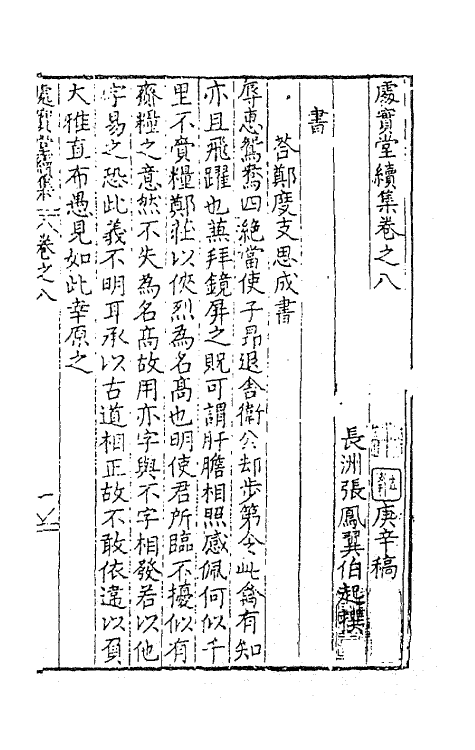 處實堂續集卷之八
庚辛稿
長洲張鳳翼伯起撰
書
荅鄭度支思成書
辱惠鴛鴦四絶當使子昂退舍衛公却步第令此禽有知
亦且飛躍也兼拜鏡屏之貺可謂肝膽相照感佩何似千
里不賫糧鄭莊以俠烈為名髙也明使君所臨不擾似有
齎糧之意然不失為名髙故用亦字與不字相發若以他
字易之恐此義不明耳承以古道相正故不敢依違以負
大雅直布愚見如此幸原之
處實堂續集 卷之八
一